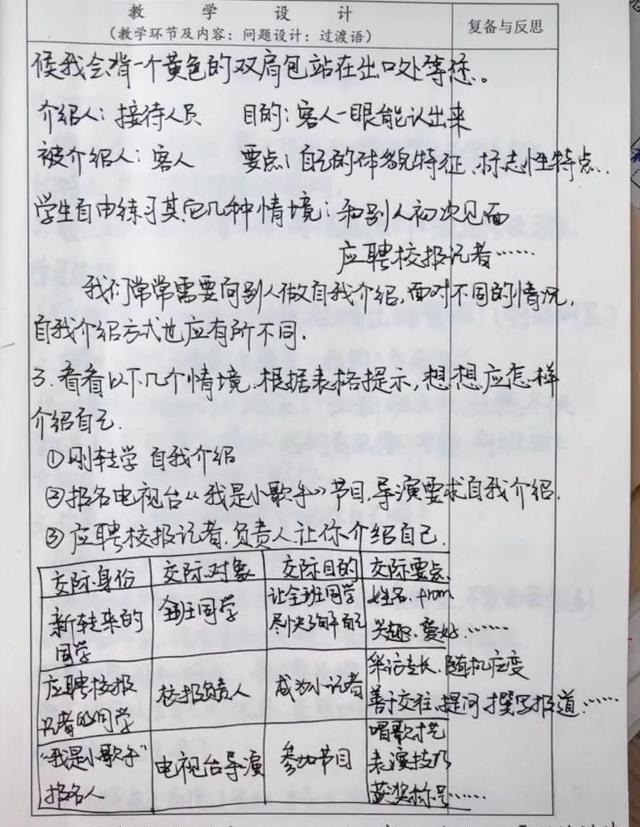 教 学 设 计
(教学环节及内容：问题设计：过渡语)
复备与反思
候我会背一个黄色的双肩包站在出口处等您。
介绍人：接待人员 目的：客人一眼能认出来
被介绍人：客人 要点：自己的体貌特征、标志性特点..
学生自由练习其它几种情境：和别人初次见面
应聘校报记者……
我们常常需要向别人做自我介绍，面对不同的情况，
自我介绍方式也应有所不同.
3.看看以下几个情境.根据表格提示，想想应怎样
介绍自己.
①刚转学 自我介绍
②报名电视台《我是小歌手》节目，导演要求自我介绍.
③应聘校报记者，负责人让你介绍自己.
交际身份 交际对象 交际目的 交际要点
新转来的同学 全班同学 让全班同学尽快了解自己 姓名、from 兴趣、爱好……
应聘校报记者的同学 校报负责人 成为小记者 采访专长、随机应变 善于交往、提问 撰写报道……
“我是小歌手”报名人 电视台导演 参加节目 唱歌才艺 表演技巧 获奖称号……